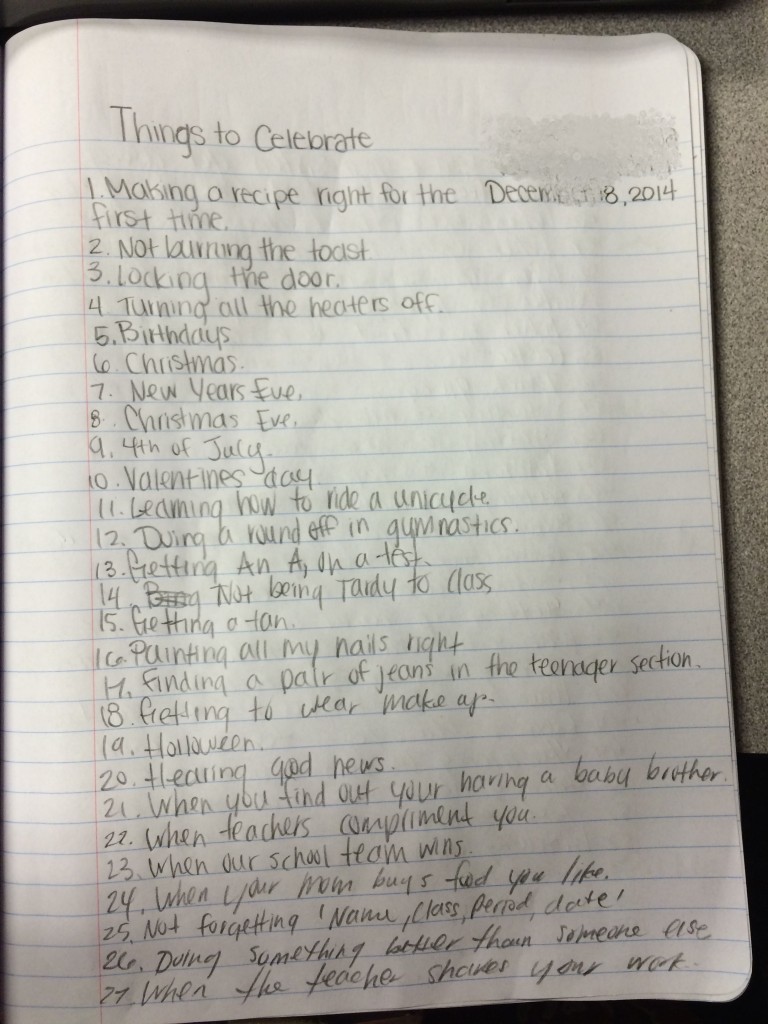 Things to Celebrate
1. Making a recipe right for the December 18, 2014
first time.
2. Not burning the toast
3. Locking the door.
4. Turning all the heaters off.
5. Birthdays
6. Christmas.
7. New Years Eve.
8. Christmas Eve.
9. 4th of July.
10. Valentines day
11. Learning how to ride a unicycle.
12. Doing a round off in gymnastics.
13. Getting An A, on a test.
14. Not being Tardy to class
15. Getting a tan.
16. Painting all my nails right
17. Finding a pair of jeans in the teenager section.
18. Getting to wear make up.
19. Halloween.
20. Hearing good news.
21. When you find out your having a baby brother.
22. When teachers compliment you.
23. When our school team wins.
24. When your mom buys food you like.
25. Not forgetting 'Name, Class, Period, date'
26. Doing something better than someone else
27. When the teacher shares your work.